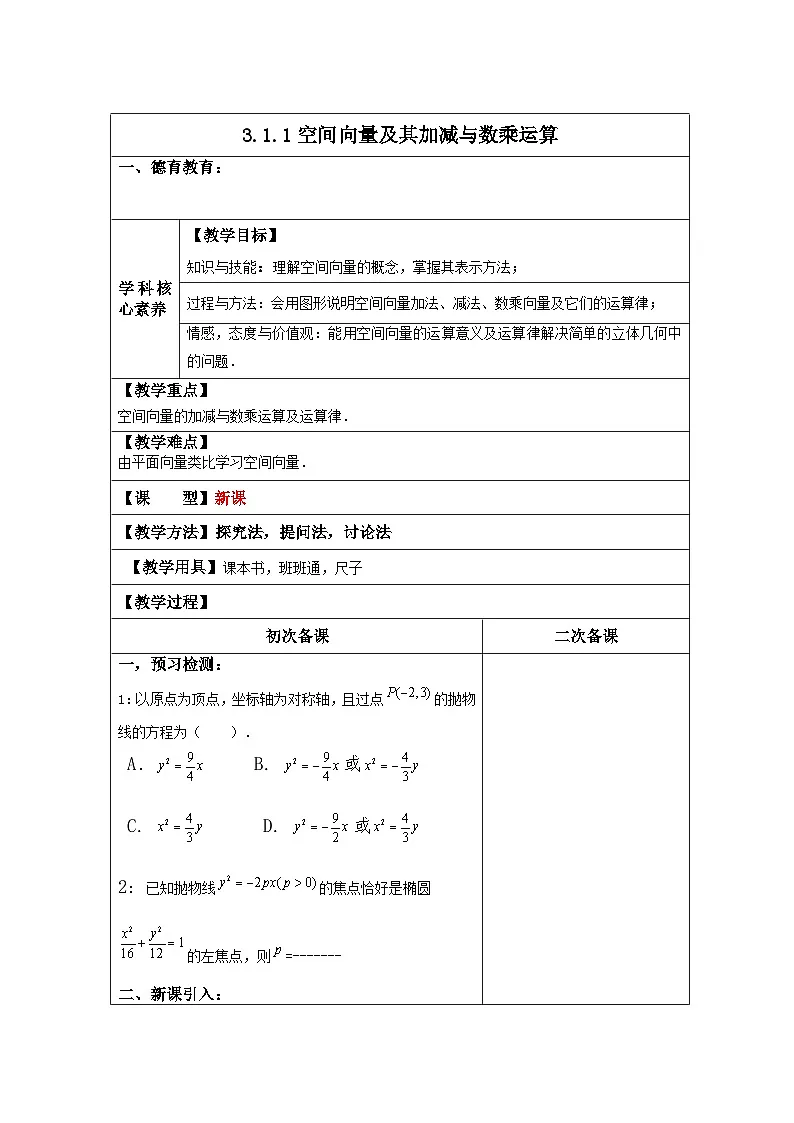 3.1.1空间向量及其加减与数乘运算
一、德育教育：
学科核心素养
【教学目标】
知识与技能：理解空间向量的概念，掌握其表示方法；
过程与方法：会用图形说明空间向量加法、减法、数乘向量及它们的运算律；
情感，态度与价值观：能用空间向量的运算意义及运算律解决简单的立体几何中
的问题．
【教学重点】
空间向量的加减与数乘运算及运算律．
【教学难点】
由平面向量类比学习空间向量．
【课　　型】新课
【教学方法】探究法，提问法，讨论法
【教学用具】课本书，班班通，尺子
【教学过程】
初次备课 二次备课
一，预习检测：
1:以原点为顶点，坐标轴为对称轴，且过点P(−2,3)的抛物
线的方程为（　　）.
A. y² = 9/4 x B. y² = −9/4 x 或 x² = −4/3 y
C. x² = 4/3 y D. y² = −9/2 x 或 x² = 4/3 y
2: 已知抛物线 y² = −2px(p > 0) 的焦点恰好是椭圆
x²/16 + y²/12 = 1 的左焦点，则 p =-------
二、新课引入：